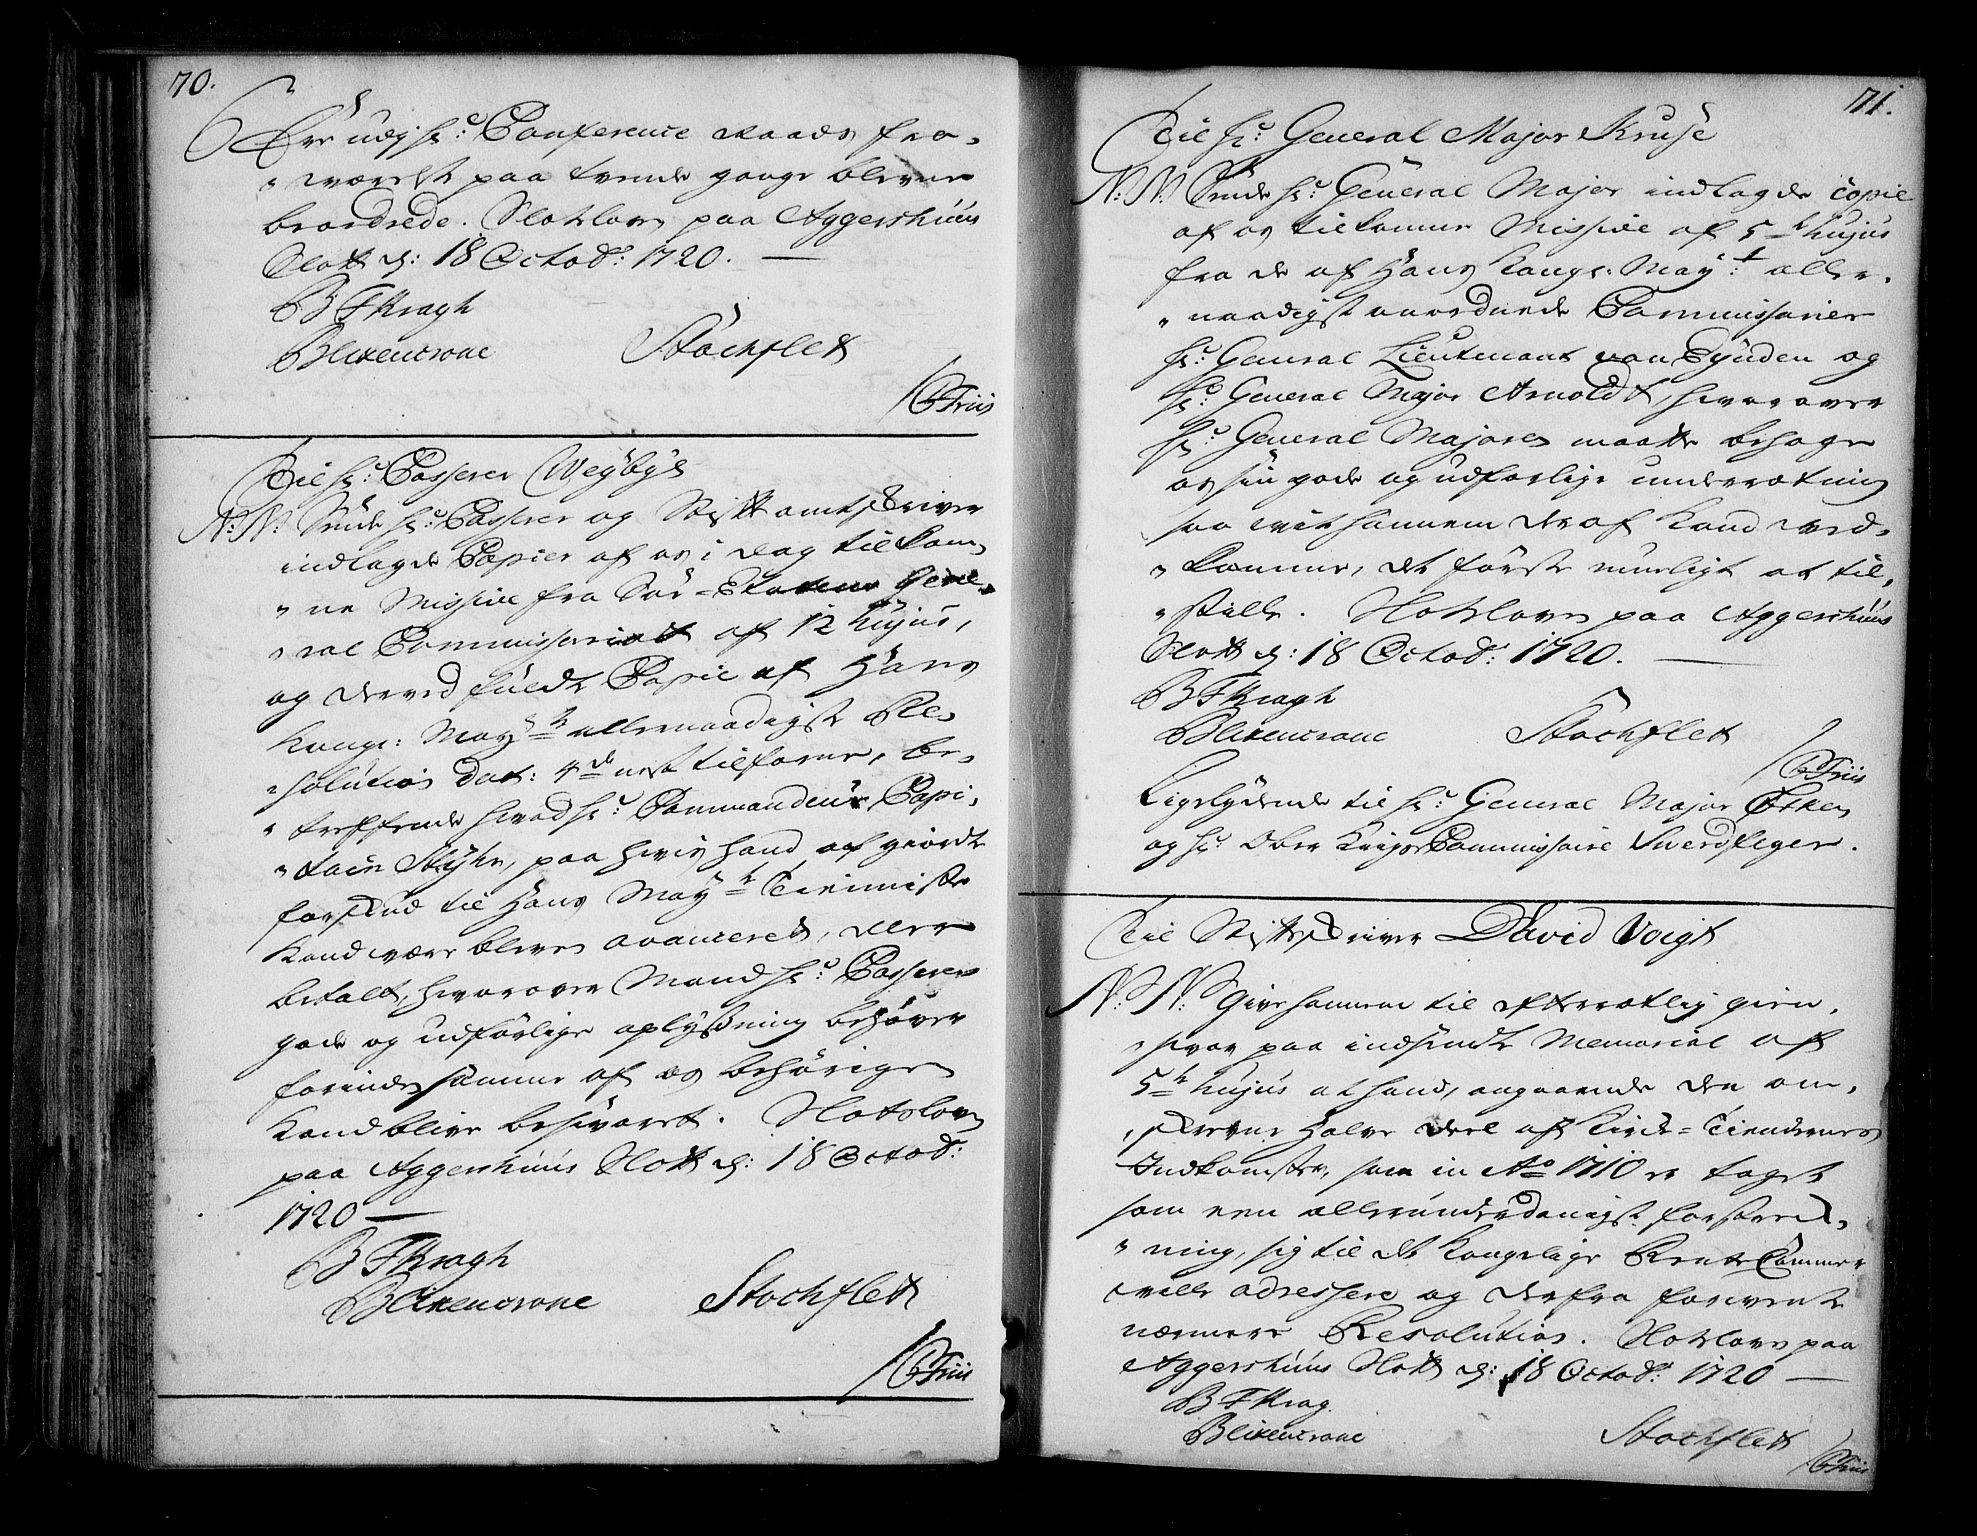 70.
udj hr: Conference Raads fra-
værelse paa tvende gange bleven
brordrede. Slotsloven paa Aggershuus
Slott d: 18 Octob: 1720.
B F Kragh
Blixencrone Stochflett
C Friis
Til hr: Casserer Weybye
N: N: Sende hr: Casserer og Stiftamtskriver
indlagde Copier af os i dag tilkom-
ne Missive fra Søe-Etatens Gene-
ral Commissariatt af 12 hujus,
og derved fuldt Copie af Hans
Kongl: Mayts allernaadigste Re-
solution Dat: 4de nest tilforne, be-
treffende hvad hr: Commandeur Capi-
tain Styhr, paa hvis haand af giordt
forskud til Hans Mayts Tieniste
Kand være bleven avanceret, dere
betalt, hvorover Mand hr: Casserer
gode og udførlige oplysning behøver
forinden samme af os behørigen
Kand blive besvaret. Slotsloven
paa Aggershuus Slott d: 18 Octob:
1720
B F Kragh
Blixencrone Stochflett
C Friis
71.
Til hr: General Major Kruse
N: N: Sende hr: General Major indlagde copie
af os tilkomne Missive af 5te hujus
fra de af Hans Kongl: Mayt: aller-
naadigst anordnede Commissarier
hr: General Lieutenant von Eynden og
hr: General Major Arnoldt, hvorover
hr: General Majoren maatte behage
os sin gode og udførlige underretning
saa vit hannem deraf Kand ved-
komme, det første mueligt at til-
stille. Slotsloven paa Aggershuus
Slott d: 18 Octob: 1720.
B F Kragh
Blixencrone Stochflett
C Friis
Ligelydende til hr: General Major
og hr: Ober Krigs Commissaire Suerdfeger.
Til Stiftskriver David Voigt
N: N: Give hannem til efterretlig gien-
svar paa indsendte Memorial af
5te hujus at hand, angaaende den om-
skrevne Halve deel af Kirke-Tiendernes
Indkomster, som in Ao 1710 er taget
som een allerunderdanigst forstrek-
ning, sig til det Kongelige Rente Cammer
ville adressere og derfra forvente
nærmere Resolution. Slotsloven paa
Aggershuus Slott d: 18 Octob: 1720
B F Krag
Blixencrone Stochflett
C Friis